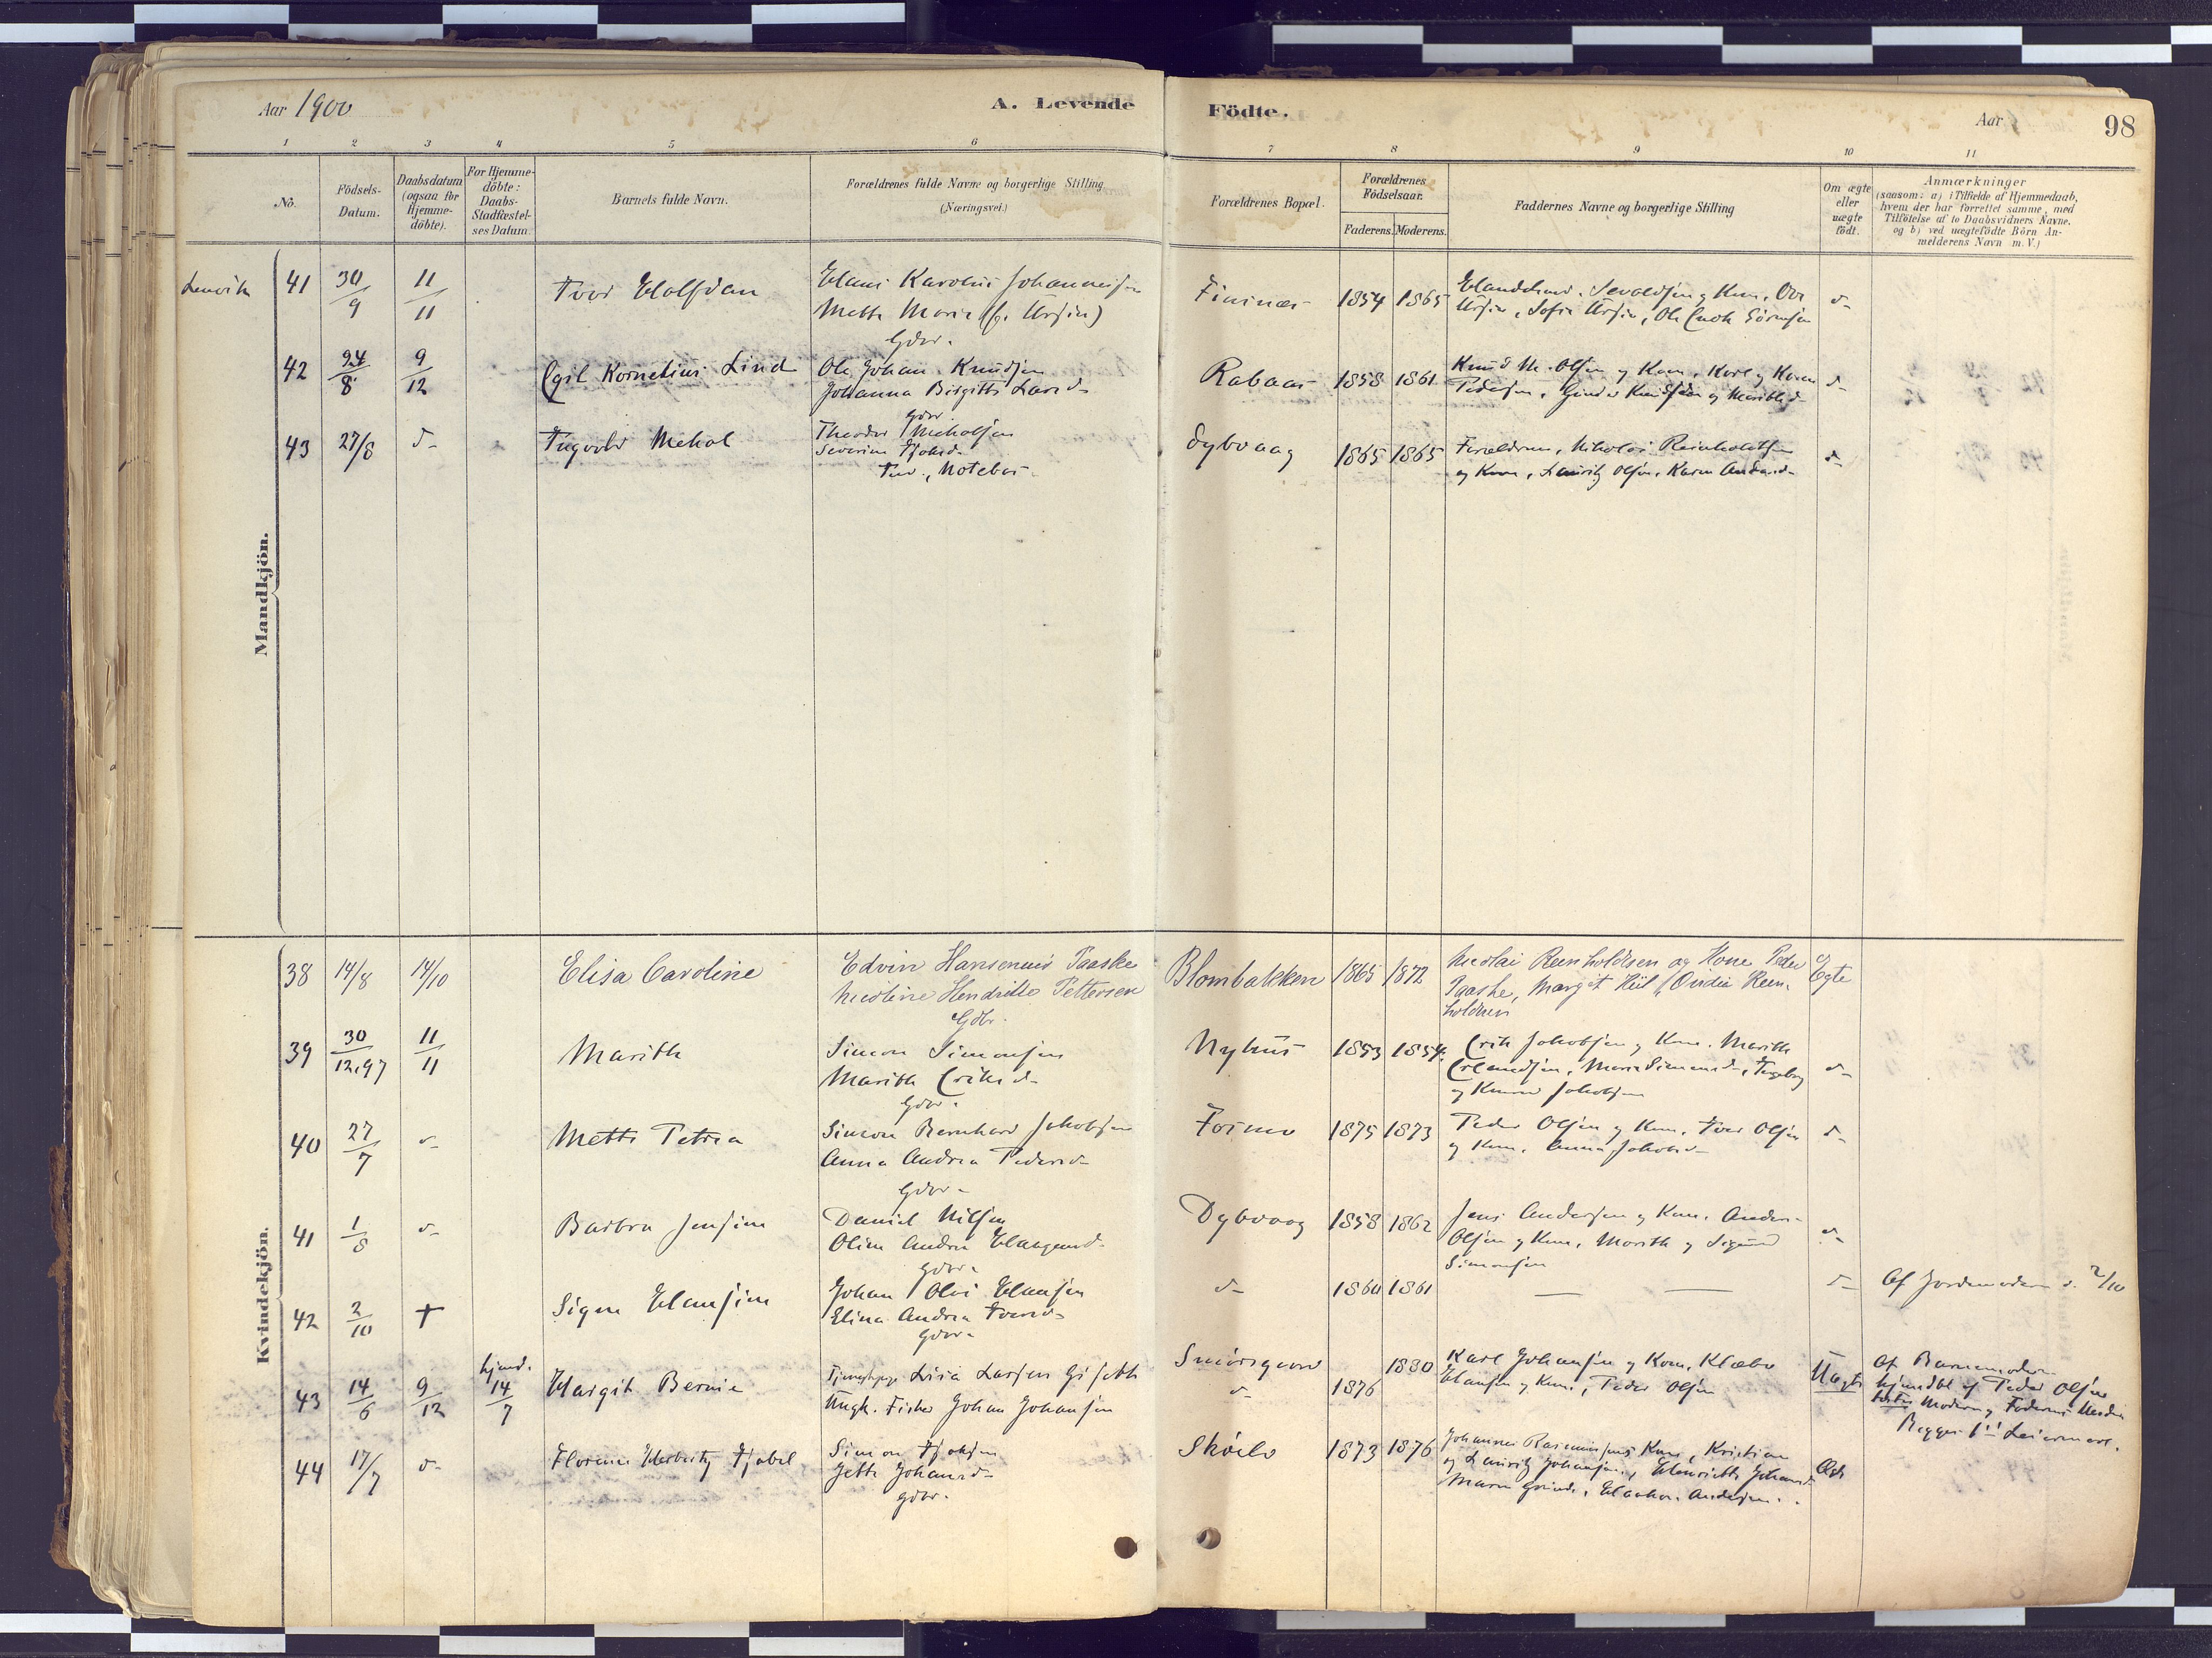 Aar 1900
A. Levende
Födte.
Aar
98
1 2 3 4 5 6 7 8 9 10 11
No.
Födsels-Datum.
Daabsdatum (ogsaa for Hjemme-döbte).
For Hjemme-döbte: Daabs-Stadfæstel-ses Datum
Barnets fulde Navn.
Forældrenes fulde Navne og borgerlige Stilling
(Næringsvei.)
Forældrenes Bopæl.
Forældrenes Födselsaar.
Faderens. Moderens.
Faddernes Navne og borgerlige Stilling
Om ægte eller uægte födt.
Anmærkninger
(saasom: a) i Tilfælde af Hjemmedaab,
hvem der har forrettet samme, med
Tilföielse af to Daabsvidners Navne,
og b) ved uægtefödte Börn An-
melderens Navn m.V.)
Mandkjön.
Lenvik 41 30/9 11/11 Ivor Halfdan
Hans Karolius Johannesen
Mette Marie (f. Ursin)
Gdbr.
Finnnæs 1854 1865
Sevaldsen og Kone, Ove
Ursin, Sofie Ursin, Ole Enok Sörensen
d-
42 24/8 9/12 Egil Kornelius Lind
Ole Johan Knudsen
Johanna Birgitte Larsd-
Gdbr.
Rabaas 1858 1861
Knud M. Olsen og Kone, Karl og Karen
Pedersen,
d-
43 27/8 d- Tiqvald Mekal
Theodor Mekalsen
Severine Tjohsd-
Ind., Notebas-
Dybvaag 1865 1865
Forældrene, Nikolai Reinholdtsen
og Kone, Lauritz Olsen, Karen Andersd-
d-
Kvindekjön.
38 14/8 14/10 Elisa Caroline
Edvin Hansenius Paaske
Nicoline Hendrikke Pettersen
Gdbr.
Blombakken 1865 1872
Nicolai Reenholdsen og Kone Peder
Paaske, Margit Kiil, Ovidie Reen-
holdsen
Egte
39 30/12.97 11/11 Marith
Simon Simonsen
Marith Eriksd-
Gdbr.
Nyhus 1853 1854.
Erik Jakobsen og Kone, Marith
Erlandsen, Marie Simonsd-, Ingeborg
og Jakobsen
d-
40 27/7 d- Mette Petrea
Simon Bernhard Jakobsen
Anna Andrea Pedersd-
Gdbr-
Formo 1875 1873
Peder Olsen og Kone, Iver Olsen
og Kone, Anna Jakobsd-
d-
41 1/8 d- Barbra Jensine
Daniel Nilsen
Oline Andrea
Gdbr-
Dybvaag 1858 1862
Jens Andersen og Kone, Anders
Olsen og Kone, Marith og Sigurd
Simonsen
d-
42 2/10 + Signe Hansine
Johan Olai Hansen
Elina Andrea Iversd-
Gdbr-
d- 1860 1861 — — d-
Af Jordmoderen d. 2/10
43 14/6 9/12 hjmd. 14/7 Hargit Bernie
Tjenestepige Lisa Larsen Gisebo
Ungk. Fisker Johan Johansen
Smörsgaard 1880
d- 1876
Karl Johansen og Kone, Klæbo
Hansen og Kone, Peder Olsen
Uægte
Af Barnemoderen
hjmdbt af Peder Olsen
Moderens og Faderens
Begges 1ste Leiermaal.
44 17/7 d- Florence Herbertz Tjabel
Simon Tjohsen
Jette Johansd-
Gdbr.
Skóelv 1873 1876
Johannes Rasmussens Kone, Kristian
og Lauritz Johansen, Henriette Johansd-
Maren Haakon Andersen..
Ægte